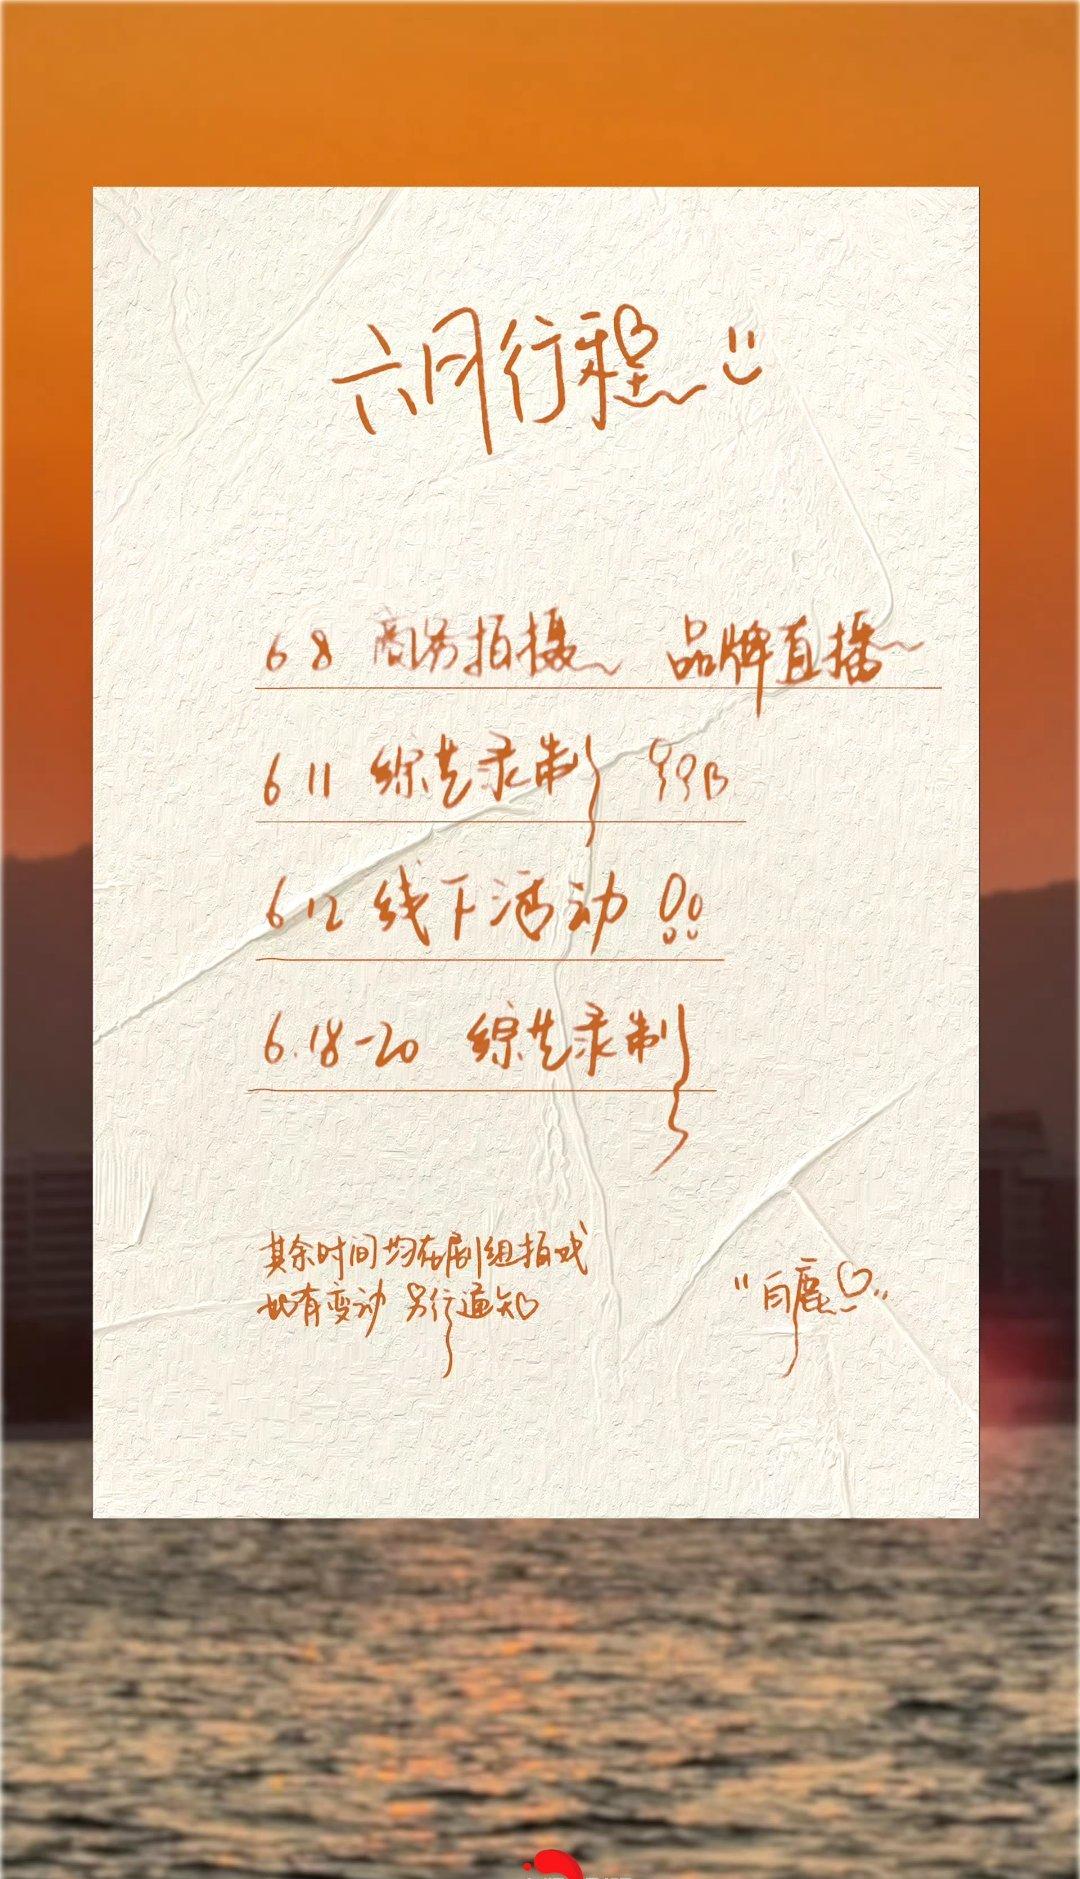 六月行程
6 8 商务拍摄~ 品牌直播~
6 11 综艺录制
6 12 线下活动 !!
6.18-20 综艺录制
其余时间均在剧组拍戏
如有变动 另行通知♡
"白鹿♡"